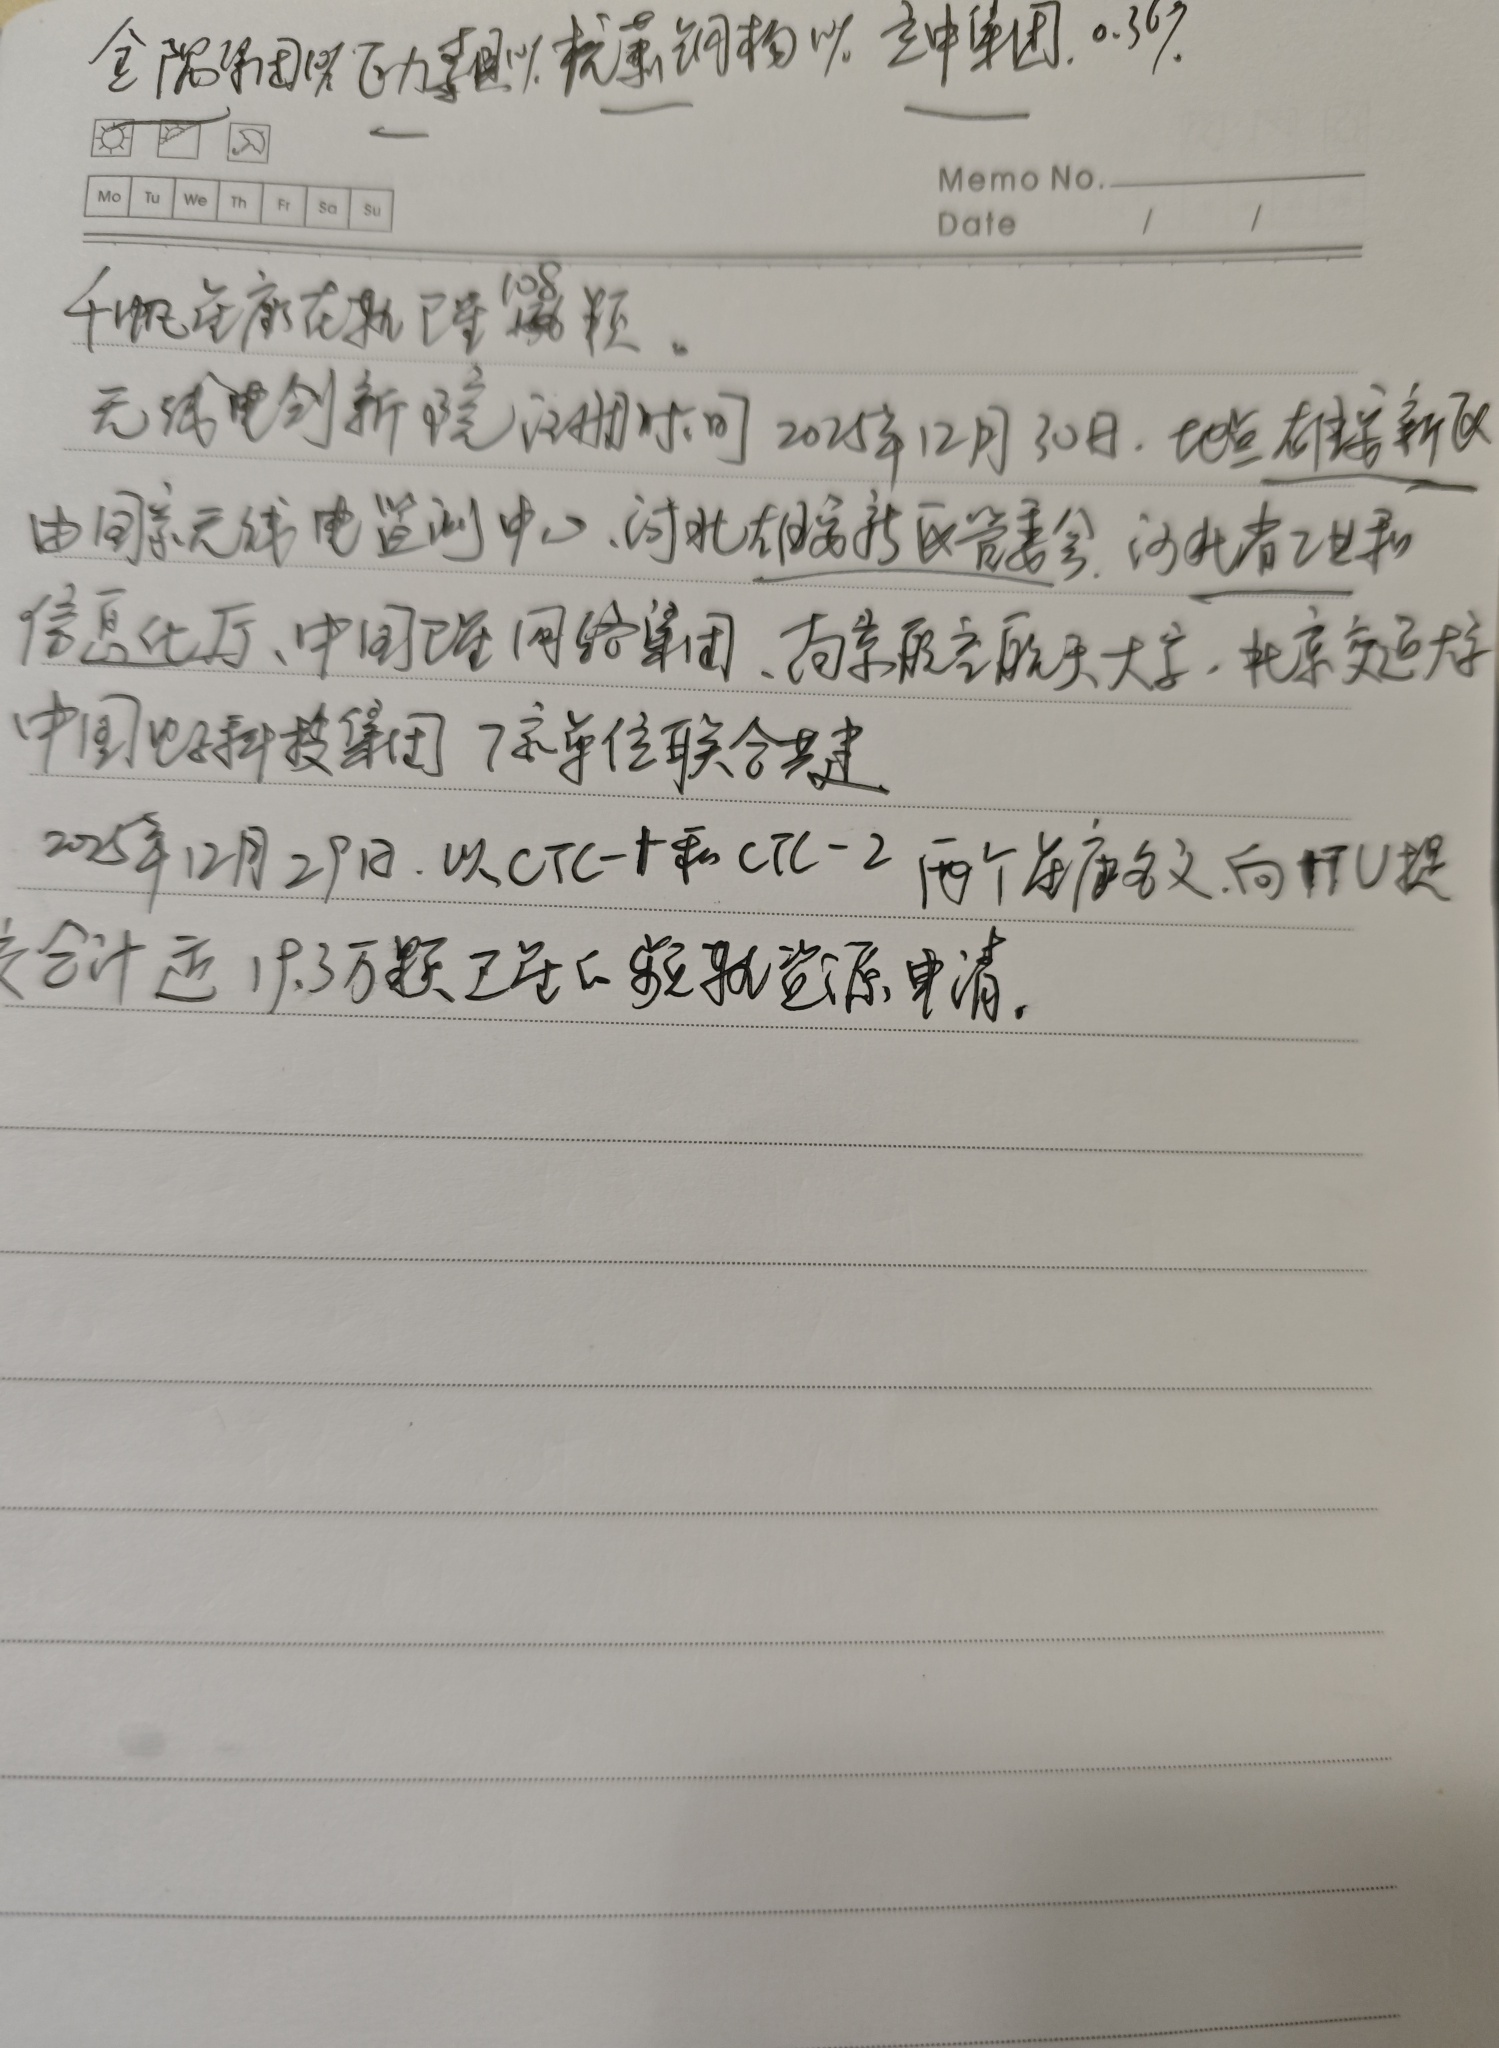 金隅集团 巨力索具 杭萧钢构 空中集团.0.36%
Mo Tu We Th Fr Sa Su
Memo No.
Date / /
千帆星座在轨卫星108颗。
无线电创新院注册时间2025年12月30日.地点雄安新区
由国家无线电监测中心、河北雄安新区管委会.河北省工业和
信息化厅、中国卫星网络集团、南京航空航天大学.北京交通大学
中国电子科技集团7家单位联合共建
2025年12月29日.以CTC-1和CTC-2两个星座名义.向ITU提
交合计近19.3万颗卫星的频轨资源申请.